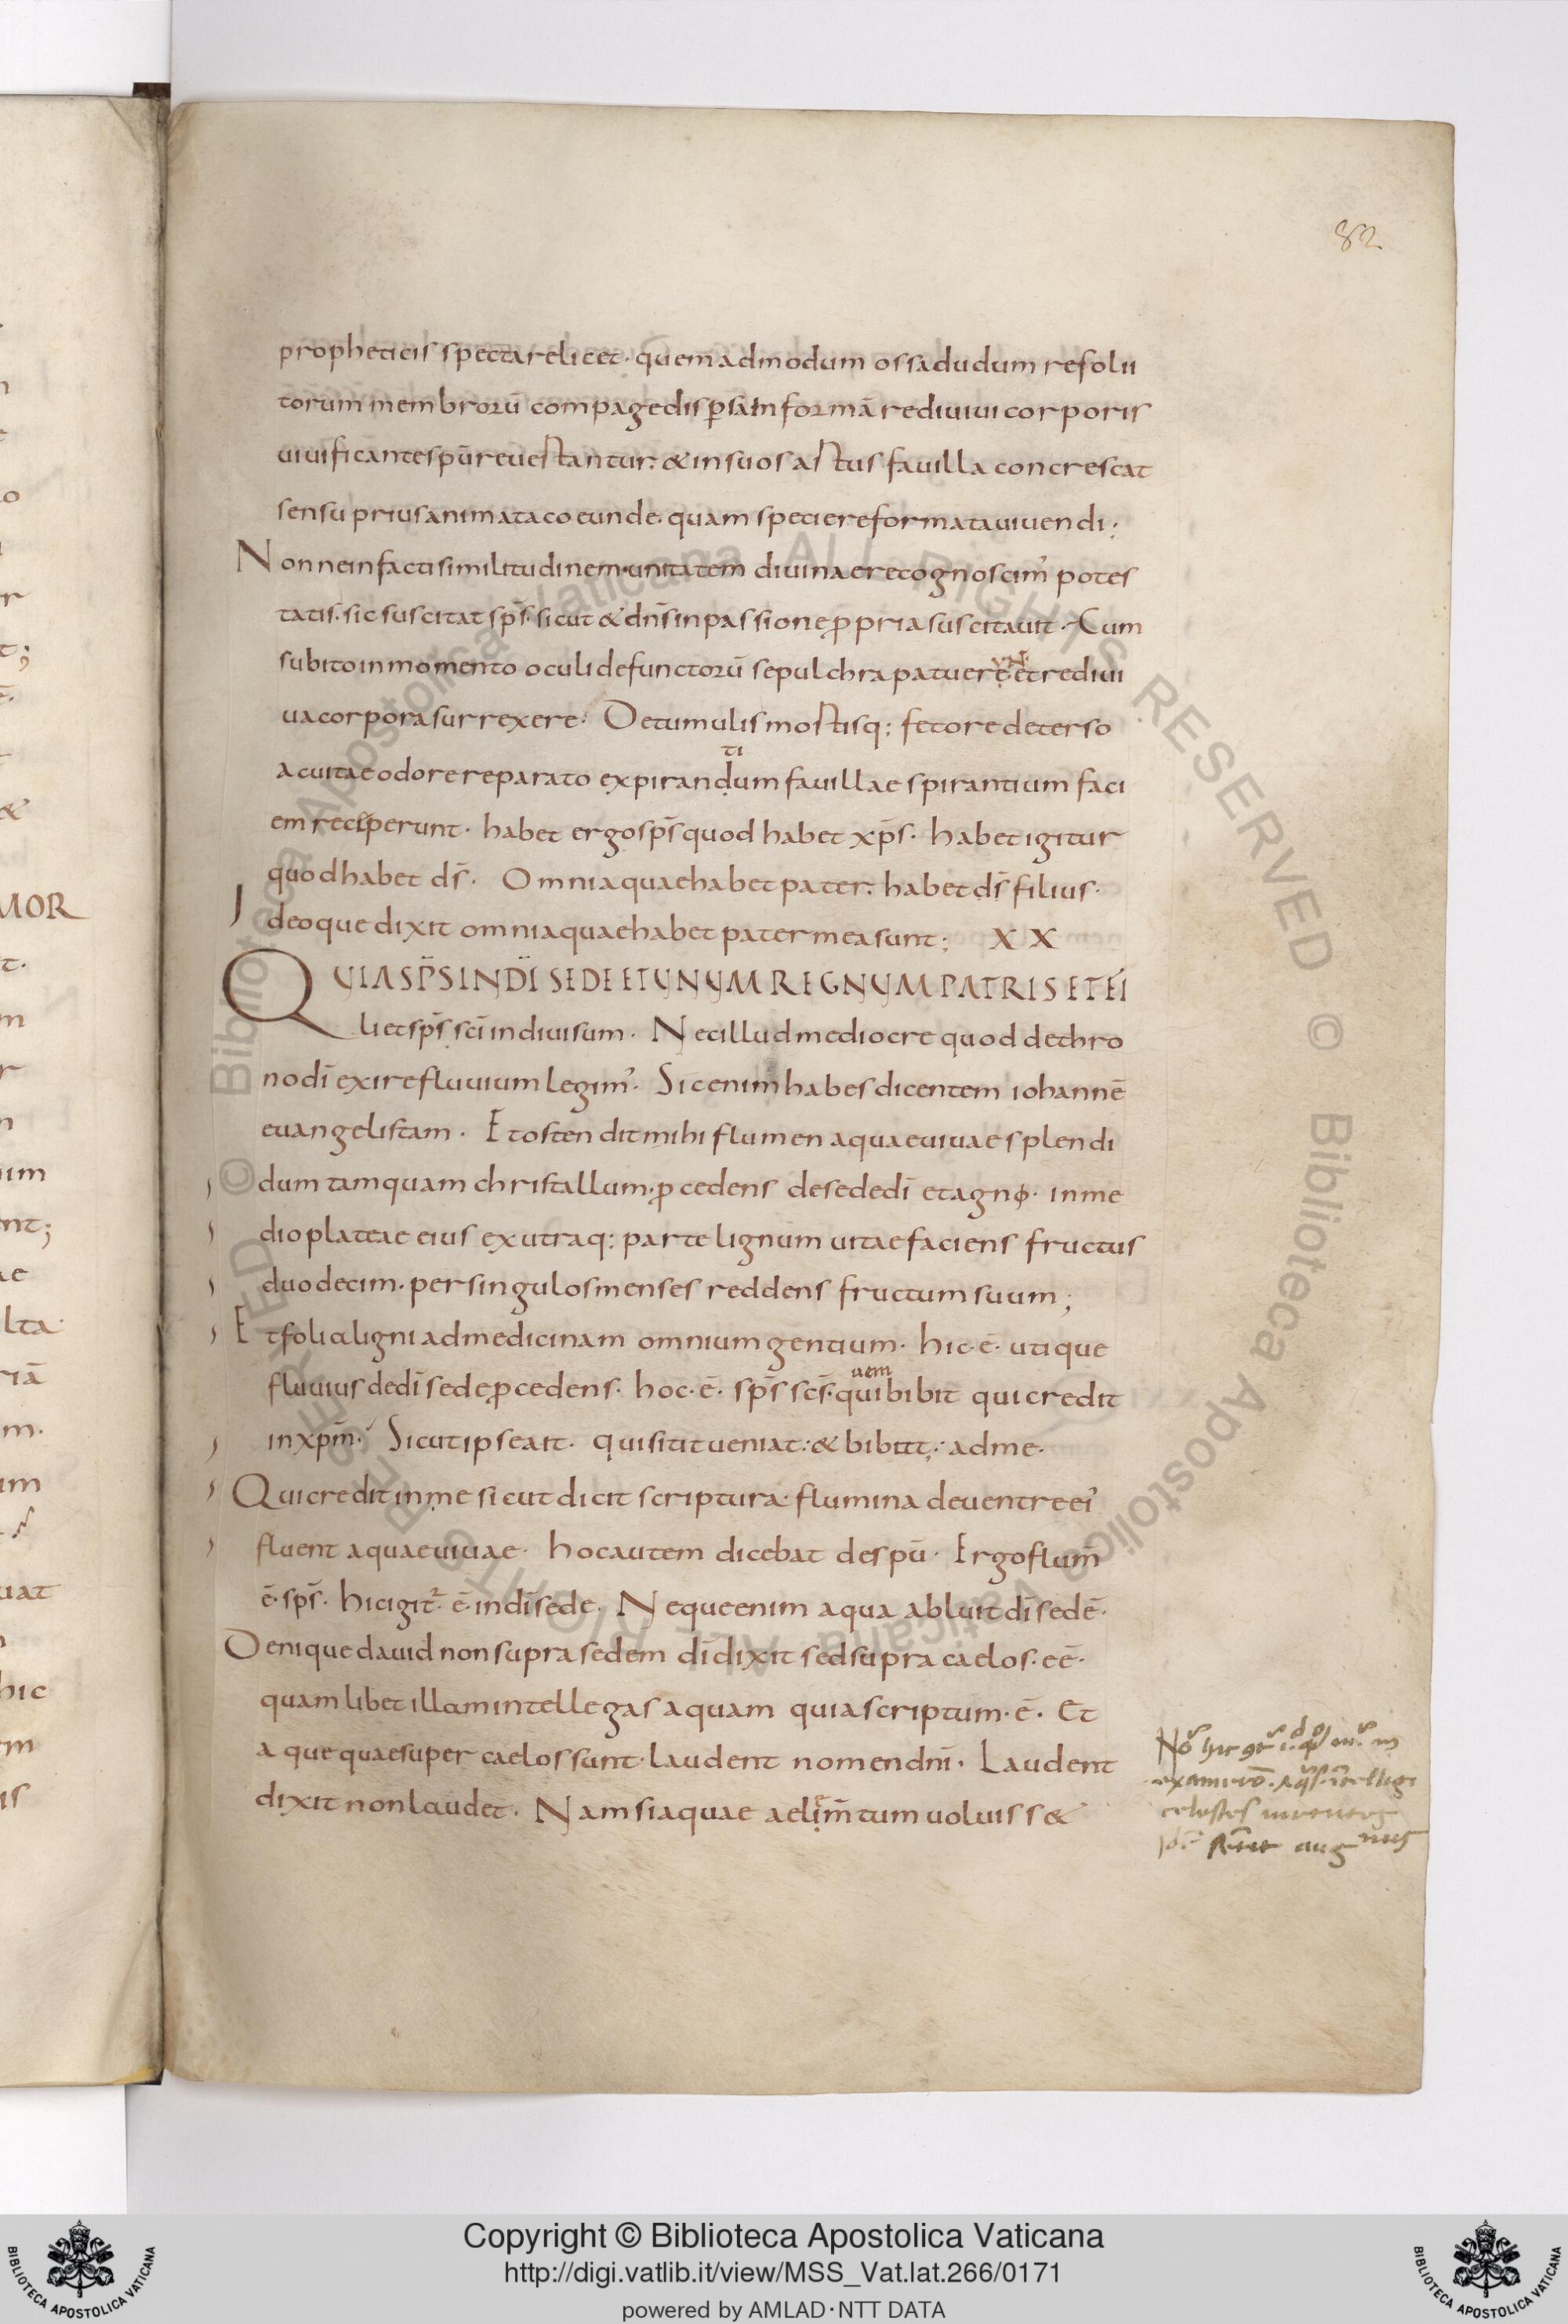 82
propheticis spectare licet· quemadmodum ossa dudum resolu
torum membrorū compage dispsa in formā rediuiui corporis
uiuificante spū reuestantur: & in suos astus fauilla concrescat
sensu prius animata coeunde· quam specie reformata uiuendi;
Nonne in facti similitudinem unitatem diuinae recognoscim' potes
tatis· sic suscitat sps̄· sicut & dn̄s in passione ppria suscitauit· Cum
subito in momento oculi defunctorū sepulchra patuere· et rediui
ua corpora surrexere· De tumulis mostisq; fetore deterso
ac uitae odore reparato expirandum fauillae spirantium faci
ti
em receperunt· habet ergo sps̄ quod habet xp̄s· habet igitur
quod habet ds̄· Omnia quae habet pater: habet ds̄ filius·
Ideoque dixit omnia quae habet pater mea sunt; XX
QUIA SP̄S IN DĪ SEDE ET UNUM REGNUM PATRIS ET FI
li et sps̄ scī indiuisum· Nec illud mediocre quod de thro
no dī exire fluuium legim'· Sic enim habes dicentem iohannē
euangelistam· Et ostendit mihi flumen aquae uiuae splendi
dum tamquam christallum· pcedens de sede dī et agno· in me
dio plateae eius ex utraq; parte lignum uitae faciens fructus
duodecim· per singulos menses reddens fructum suum;
Et folia ligni ad medicinam omnium gentium· hic·ē· utique
fluuius de dī sede pcedens· hoc·ē· sps̄ scs̄· qui bibit qui credit
uem
in xpm̄· Sicut ipse ait· qui sitit ueniat: & bibat: ad me·
Qui credit in me sicut dicit scriptura· flumina de uentre ei'
fluent aquae uiuae· hoc autem dicebat de spū· Ergo flum̄
ē· sps̄· hic igit²· ē· in dī sede· Neque enim aqua abluit dī sedē·
Denique dauid non supra sedem dī dixit sed supra caelos· eē·
quam libet illam intellegas aquam quia scriptum·ē· Et
aque quae super caelos sunt· laudent nomen dnī· Laudent
dixit non laudet· Nam si aquae aelim̄tum uoluiss&
e
Copyright © Biblioteca Apostolica Vaticana
http://digi.vatlib.it/view/MSS_Vat.lat.266/0171
powered by AMLAD·NTT DATA
BIBLIOTECA APOSTOLICA VATICANA
BIBLIOTECA APOSTOLICA VATICANA